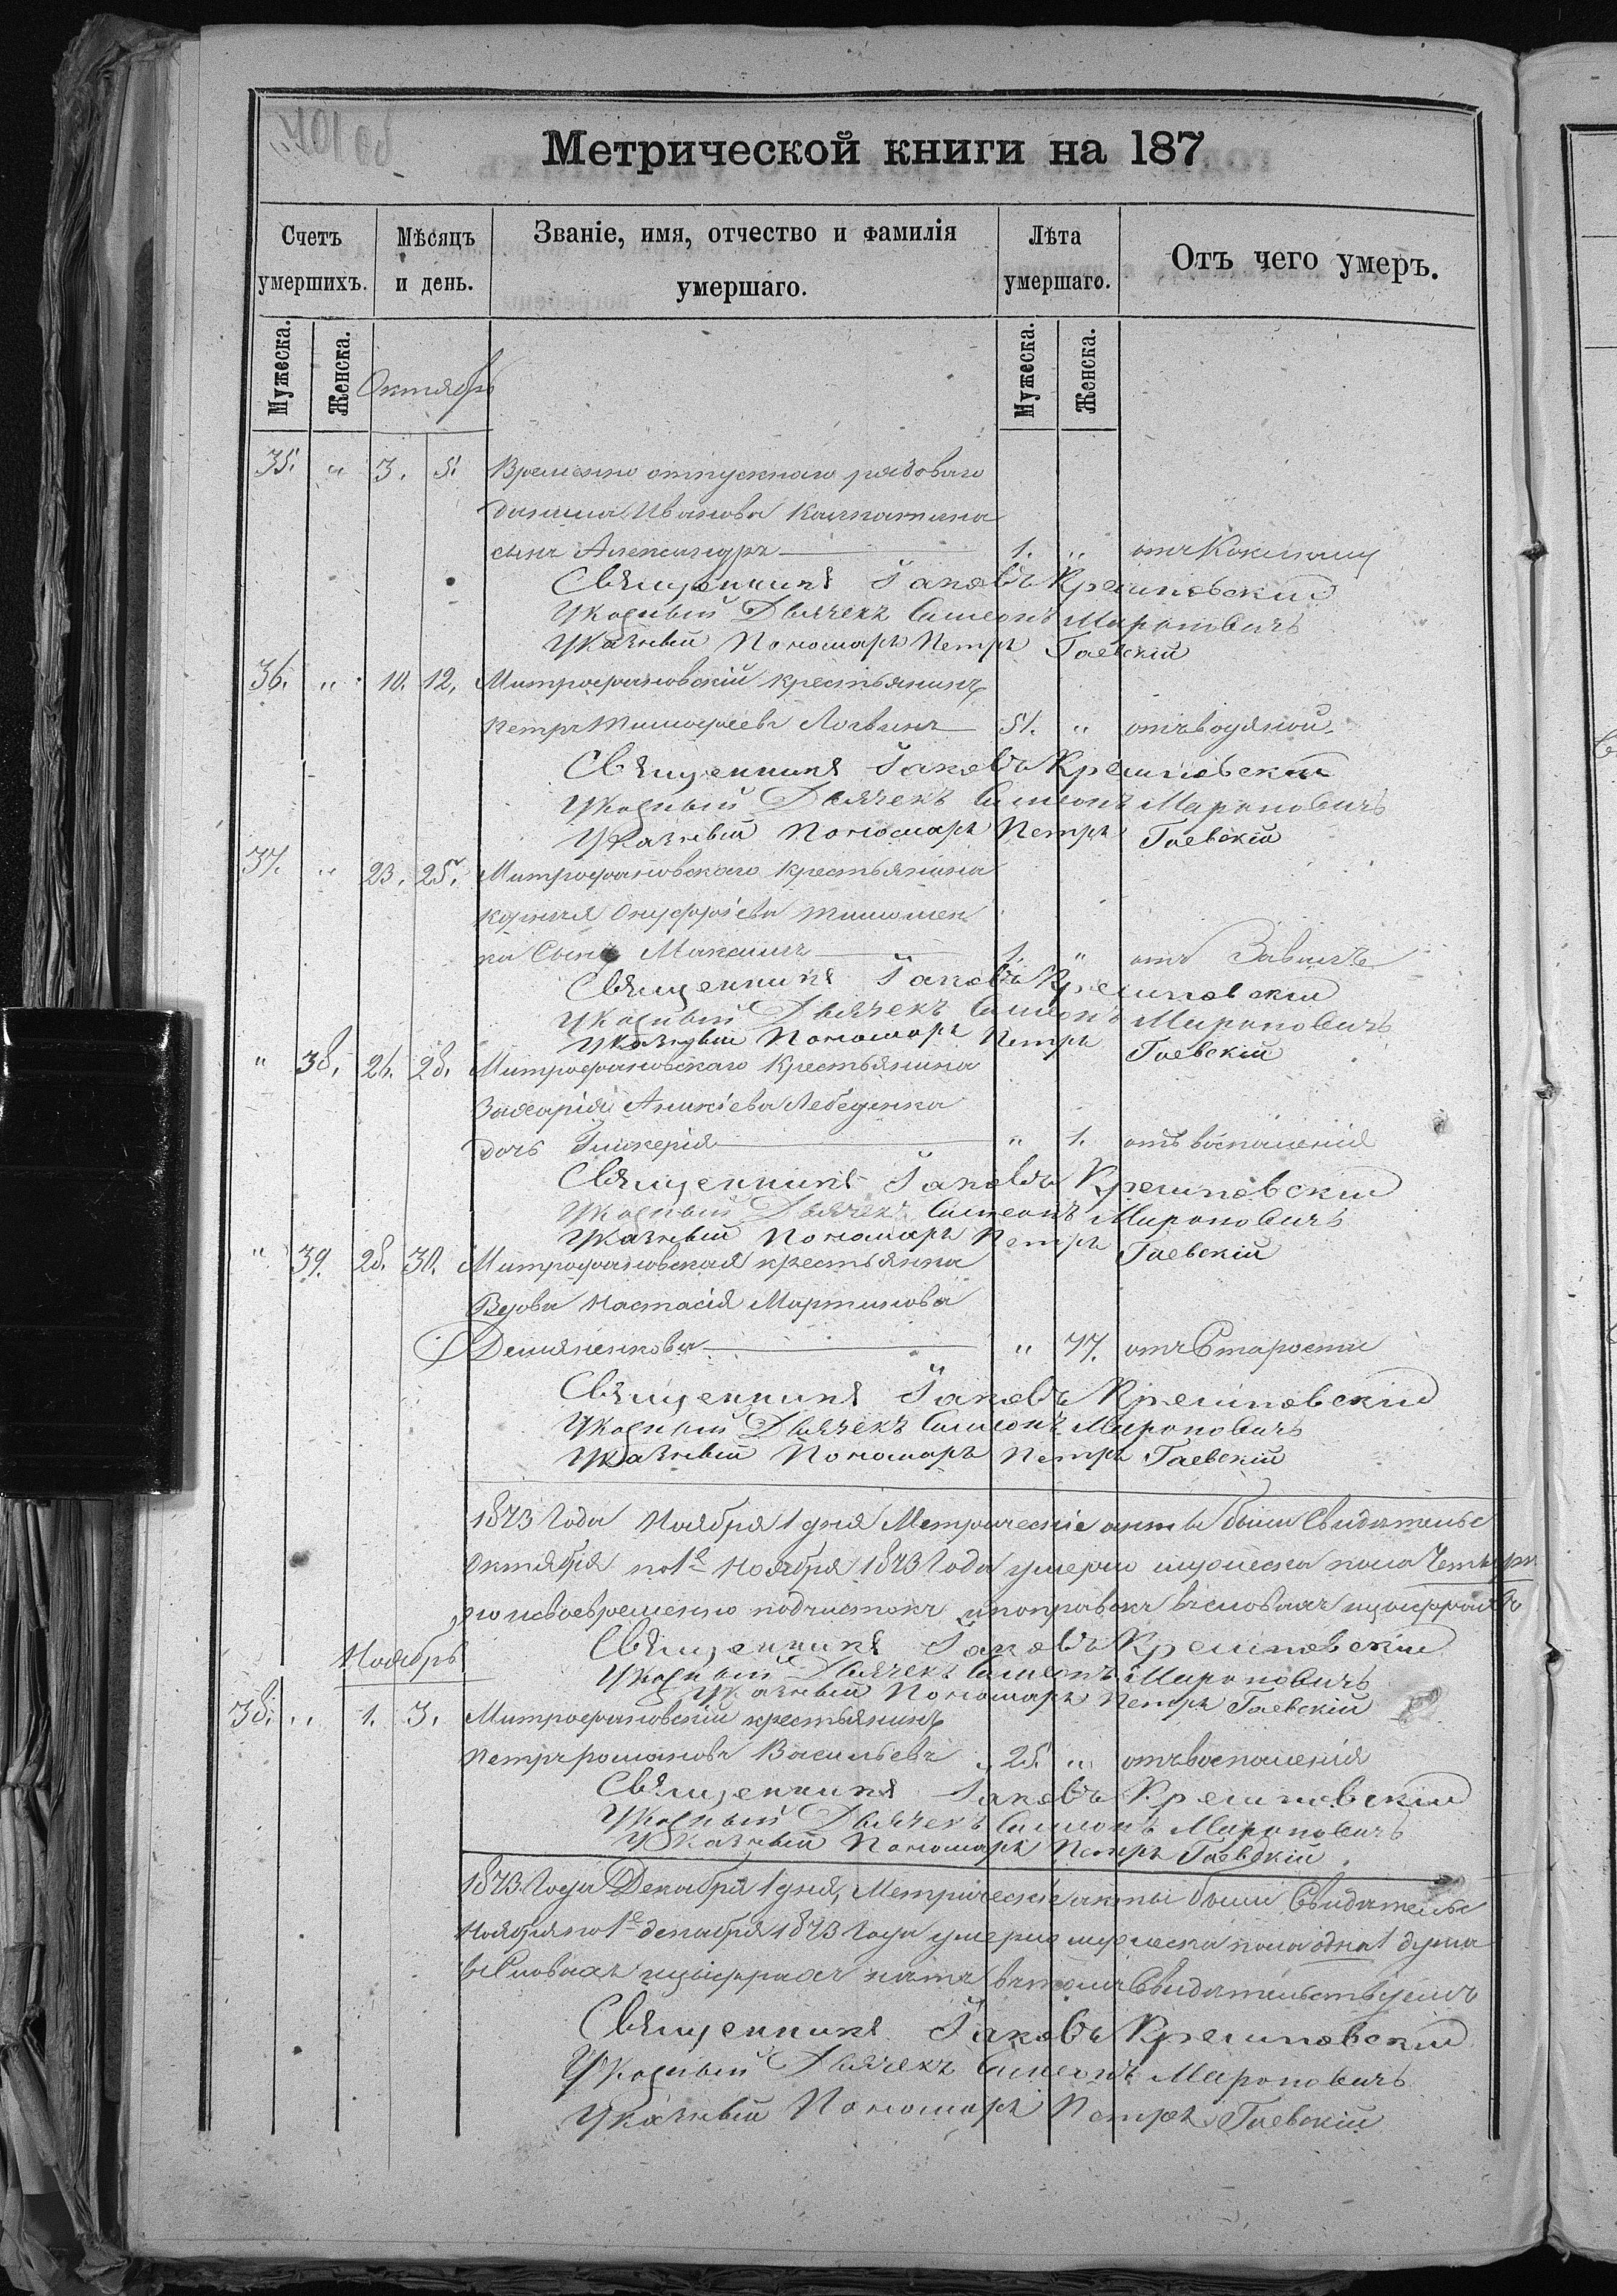 101 об
Метрической книги на 187
Счетъ умершихъ.
Мѣсяцъ и день.
Званіе, имя, отчество и фамилія умершаго.
Лѣта умершаго.
Отъ чего умеръ.
Мужеска.
Женска.
Мужеска.
Женска.
Октябрь
35. " 3. 5. Временно отпускнаго рядоваго
Данила Иванова
сынъ Александръ 1. " отъ Коклюшу
Священникъ Іаковъ Крешновскій
Указный Дьячекъ Симеонъ Мироновичъ
Указный Пономарь Петръ Гаевскій
36. " 10. 12. Митрофановскій крестьянинъ
Петръ Тимофеевъ Логвинъ 51. " отъ водяной
Священникъ Іаковъ Крешновскій
Указный Дьячекъ Симеонъ Мироновичъ
Указный Пономарь Петръ Гаевскій
37. " 23. 25. Митрофановскаго крестьянина
Корнилія Онуфріева Тимошен
ка Сынъ Максимъ 1. " отъ
Священникъ Іаковъ Крешновскій
Указный Дьячекъ Симеонъ Мироновичъ
Указный Пономарь Петръ Гаевскій
" 38. 26. 28. Митрофановскаго крестьянина
Захарія Аникіева Лебединка
дочь Гликерія " 1. отъ воспаленія
Священникъ Іаковъ Крешновскій
Указный Дьячекъ Симеонъ Мироновичъ
Указный Пономарь Петръ Гаевскій
" 39. 28. 30. Митрофановская крестьянка
Вдова Настасія Мартинова
Демяненкова " 77. отъ Старости
Священникъ Іаковъ Крешновскій
Указный Дьячекъ Симеонъ Мироновичъ
Указный Пономарь Петръ Гаевскій
1873 Года Ноября 1 дня Метрическіе акты были Свидѣтельс
Октября по 1е Ноября 1873 Года умерло мужеска пола Четыре
своевременно подчистокъ и поправокъ въ словахъ и цыфрахъ
Священникъ Іаковъ Крешновскій
Указный Дьячекъ Симеонъ Мироновичъ
Указный Пономарь Петръ Гаевскій
Ноябрь
38. " 1. 3. Митрофановскій крестьянинъ
Петръ Романовъ Васильевъ 25. " отъ воспаленія
Священникъ Іаковъ Крешновскій
Указный Дьячекъ Симеонъ Мироновичъ
Указный Пономарь Петръ Гаевскій
1873 Года Декабря 1 дня, Метрическіе акты были Свидѣтельс
Ноября по 1е декабря 1873 Года умерло мужеска пола одна 1 душа
въ Словахъ и цыфрахъ нѣтъ въ томъ Свидѣтельствуемъ
Священникъ Іаковъ Крешновскій
Указный Дьячекъ Симеонъ Мироновичъ
Указный Пономарь Петръ Гаевскій